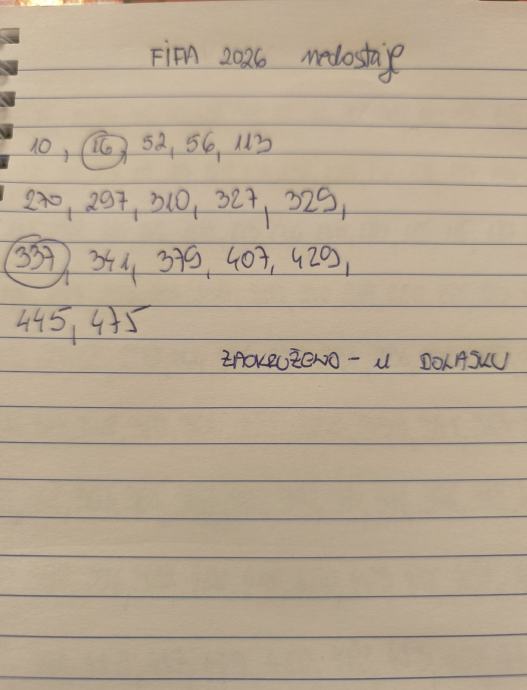 FIFA 2026 nedostaje
10, 16, 52, 56, 113
270, 297, 310, 327, 329,
337, 341, 379, 407, 429,
445, 475
ZAOKRUŽENO - U DOLASKU